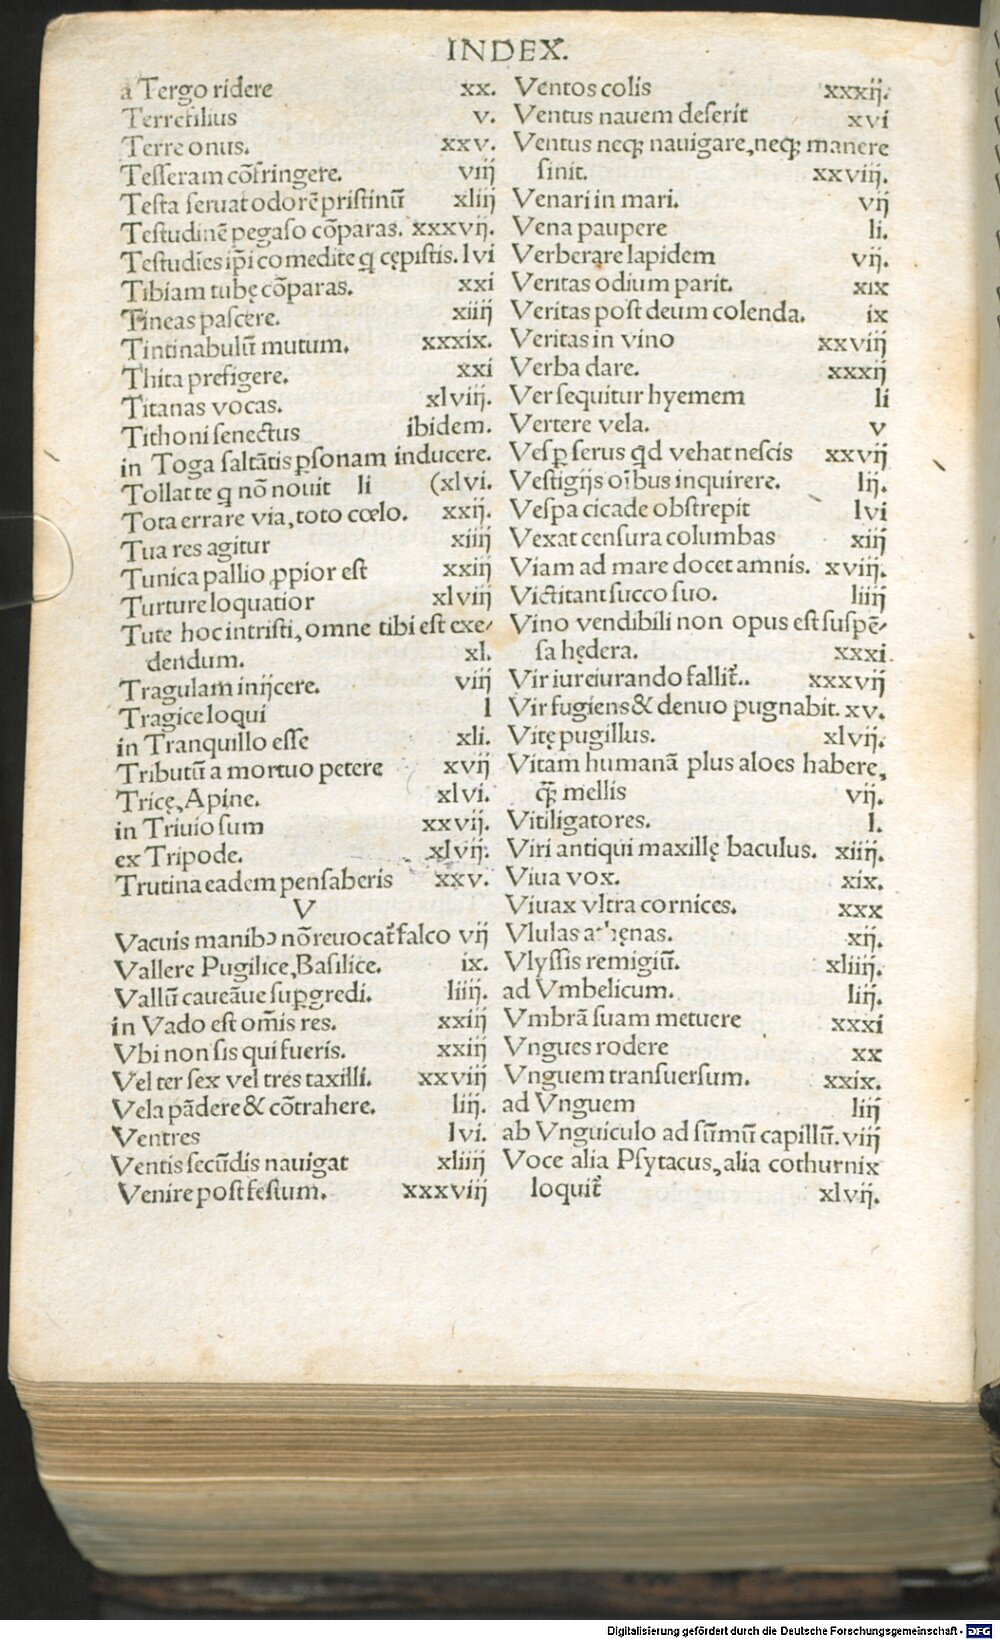 INDEX.
a Tergo ridere xx.
Terrefilius v.
Terre onus. xxv.
Tesseram cõfringere. viij
Testa seruat odorẽ pristinũ xliij
Testudinẽ pegaso cõparas. xxxvij.
Testudĩes ip̃i comedite q̃ cępistis. lvi
Tibiam tubę cõparas. xxi
Tineas pascere. xiiij
Tintinabulũ mutum. xxxix.
Thita prefigere. xxi
Titanas vocas. xlviij.
Tithoni senectus ibidem.
in Toga saltãtis ꝑsonam inducere.
Tollat te q̃ nõ nouit li (xlvi.
Tota errare via, toto cœlo. xxij.
Tua res agitur xiiij
Tunica pallio ꝓpior est xxiij
Turture loquatior xlviij
Tute hoc intristi, omne tibi est exe⸗
dendum. xl.
Tragulam inijcere. viij
Tragice loqui l
in Tranquillo esse xli.
Tributũ a mortuo petere xvij
Tricę, Apine. xlvi.
in Triuio sum xxvij.
ex Tripode. xlvij.
Trutina eadem pensaberis xxv.
V
Vacuis manibꝰ nõ reuocat᷑ falco vij
Vallere Pugilice, Basilice. ix.
Vallũ caueãue suꝑgredi. liiij.
in Vado est om̃is res. xxiij
Vbi non sis qui fueris. xxiij
Vel ter sex vel tres taxilli. xxviij
Vela pãdere & cõtrahere. lij.
Ventres lvi.
Ventis secũdis nauigat xliij
Venire post festum. xxxviij
Ventos colis xxxij.
Ventus nauem deserit xvi
Ventus neqꝫ nauigare, neqꝫ manere
sinit. xxviij.
Venari in mari. vij
Vena paupere li.
Verberare lapidem vij.
Veritas odium parit. xix
Veritas post deum colenda. ix
Veritas in vino xxviij
Verba dare. xxxij
Ver sequitur hyemem li
Vertere vela. v
Vesꝑ serus qd̃ vehat nescis xxvij
Vestigijs oĩbus inquirere. lij.
Vespa cicade obstrepit lvi
Vexat censura columbas xij
Viam ad mare docet amnis. xviij.
Victitant succo suo. liiij
Vino vendibili non opus est suspẽ⸗
sa hędera. xxxi.
Vir iureiurando fallit᷑.. xxxvij
Vir fugiens & denuo pugnabit. xv.
Vitę pugillus. xlvij.
Vitam humanã plus aloes habere,
q̃ꝫ mellis vij.
Vitiligatores. l.
Viri antiqui maxillę baculus. xiiij.
Viua vox. xix.
Viuax vltra cornices. xxx
Vlulas athęnas. xij.
Vlyssis remigiũ. xliiij.
ad Vmbelicum. lij.
Vmbrã suam metuere xxxi
Vngues rodere xx
Vnguem transuersum. xxix.
ad Vnguem liij
ab Vnguiculo ad sũmũ capillũ. viij
Voce alia Psytacus, alia cothurnix
loquit᷑ xlvij.
Digitalisierung gefördert durch die Deutsche Forschungsgemeinschaft - DFG